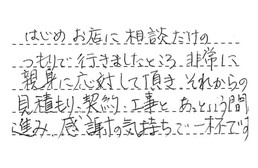 はじめ お店に 相談だけの
つもりで 行きましたところ 非常に
親身に応対して頂き それからの
見積もり、契約、工事と あっという間
進み 感謝の気持ちで一杯です